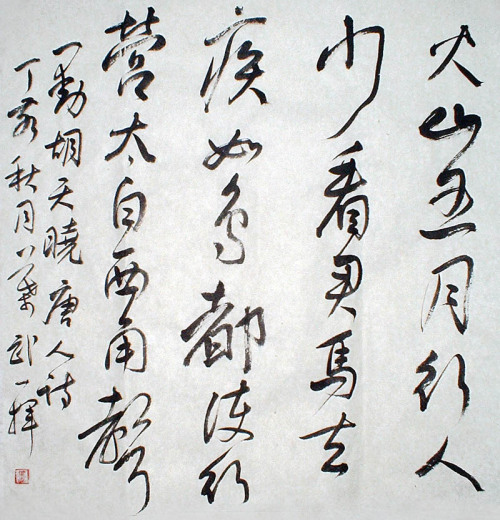 火山五月行人
少看君馬去
疾如鳥都護行
營太白西角聲
一動胡天曉唐人詩
丁亥秋月一揮